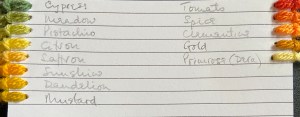 Cypress
Meadow
Pistachio
Citron
Saffron
Sunshine
Dandelion
Mustard
Tomato
Spice
Clementine
Gold
Primrose (Dara)